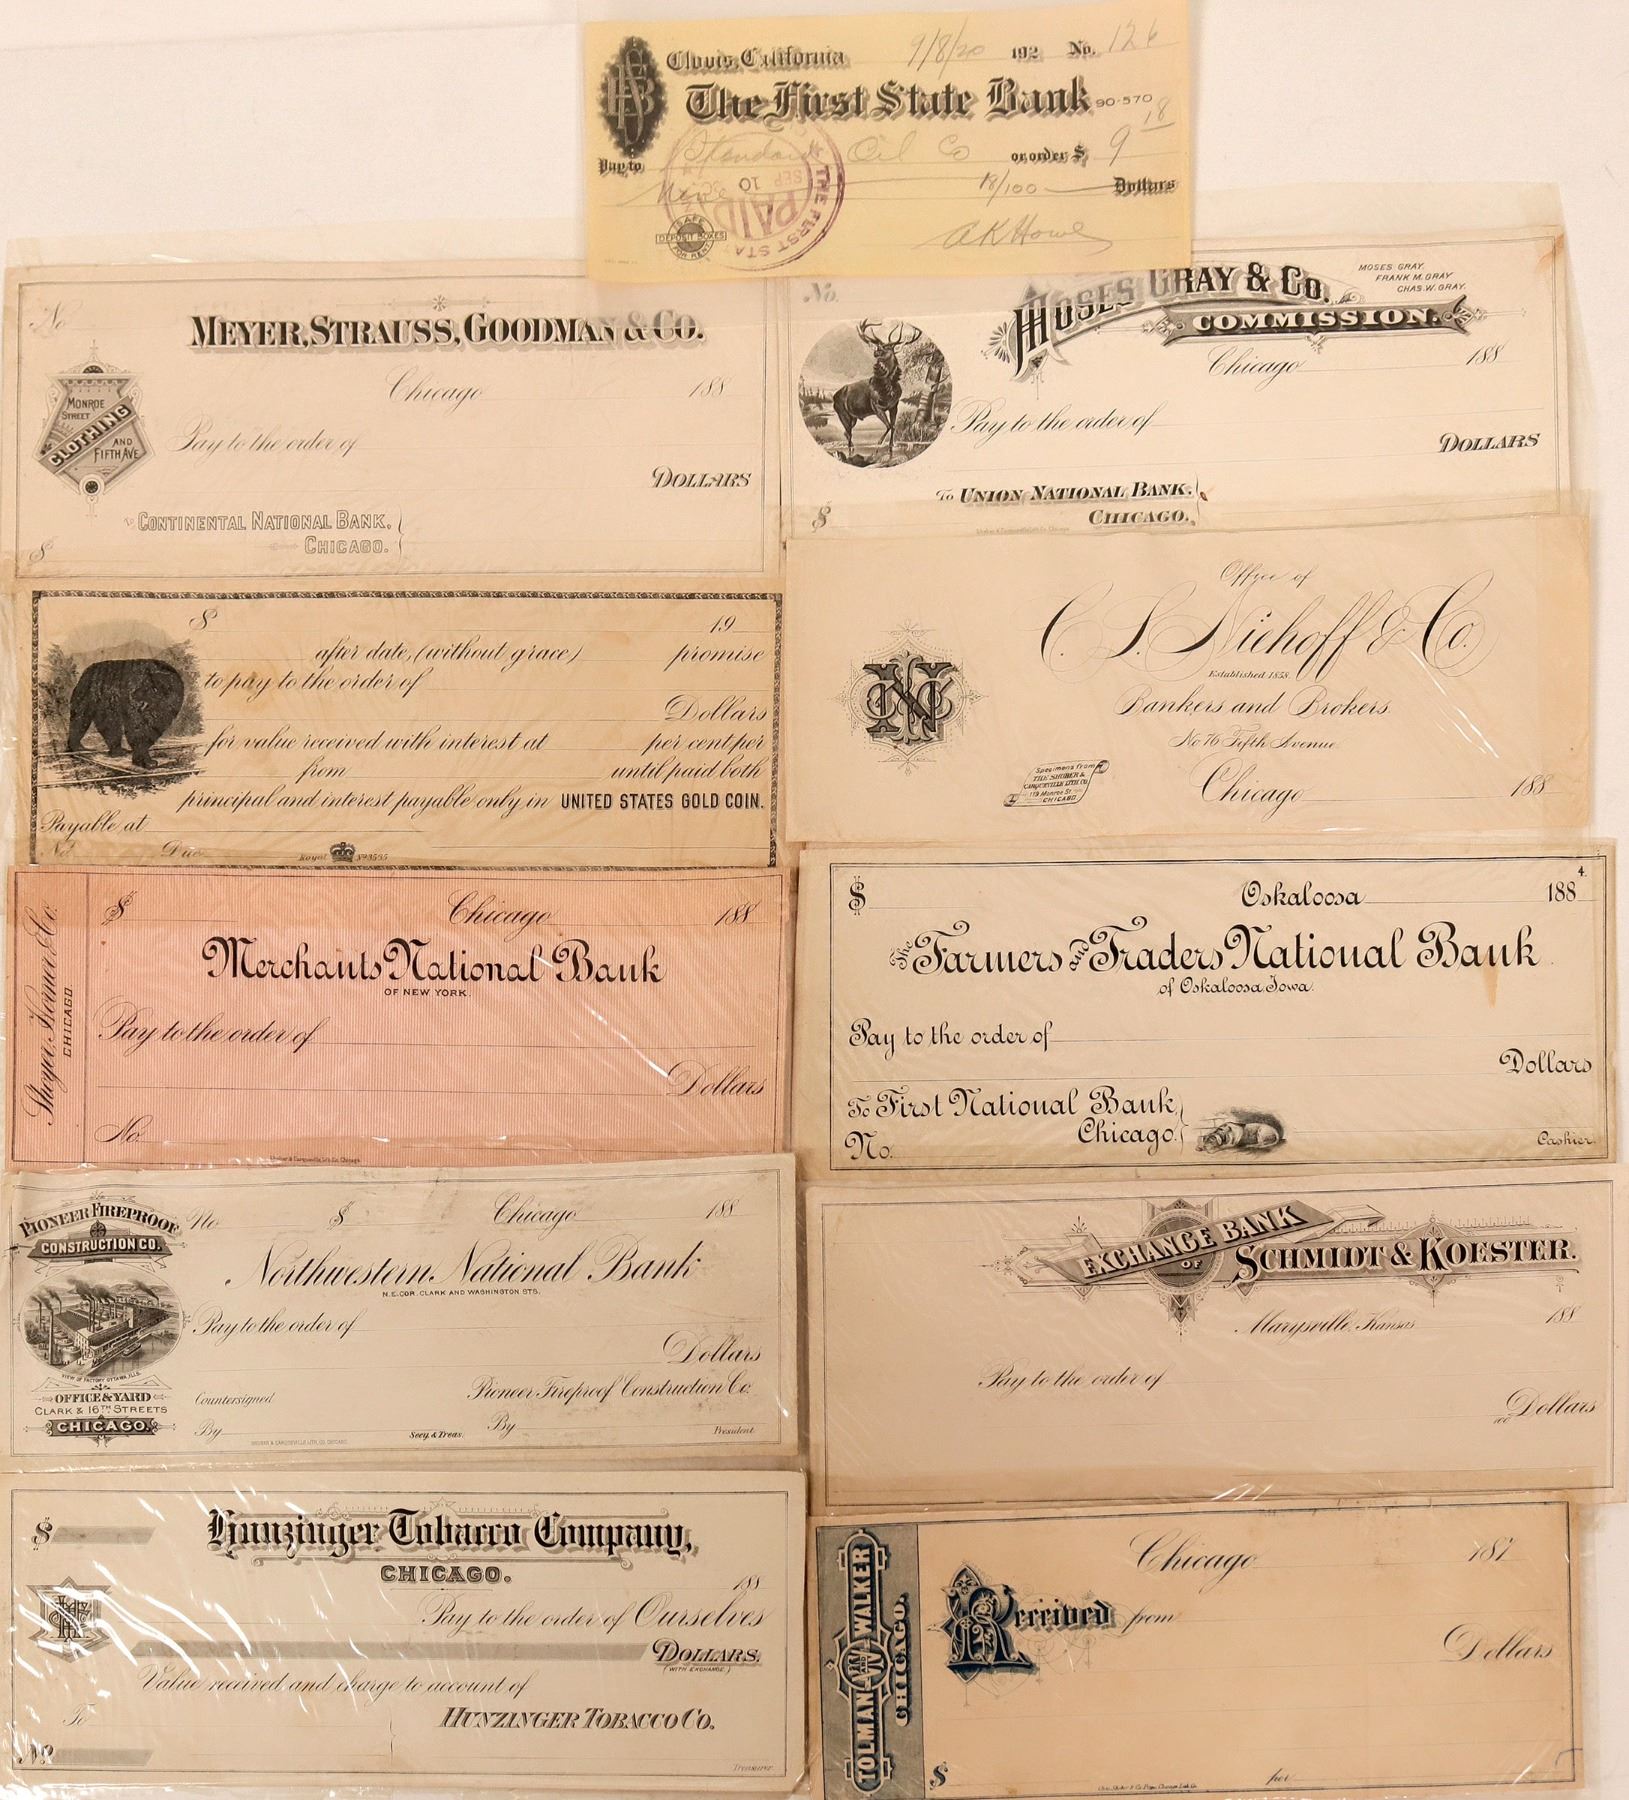 Clovis, California 9/8/20 192 No. 126
The First State Bank 90-570
Pay to Standard Oil Co or order $ 9 18
Nine 18/100 Dollars
THE FIRST STA
PAID
SEP 10
SAFE
DEPOSIT BOXES
FOR RENT
A K Howe
No
MEYER, STRAUSS, GOODMAN & CO.
Chicago 188
MONROE
STREET
CLOTHING
AND
FIFTH AVE
Pay to the order of
DOLLARS
To CONTINENTAL NATIONAL BANK,
CHICAGO.
$
No.
MOSES GRAY & CO.
COMMISSION.
MOSES GRAY.
FRANK M. GRAY
CHAS. W. GRAY.
Chicago 188
Pay to the order of
DOLLARS
To UNION NATIONAL BANK,
CHICAGO.
$
$ 19
after date, (without grace) promise
to pay to the order of
Dollars
for value received with interest at per cent per
from until paid both
principal and interest payable only in UNITED STATES GOLD COIN.
Payable at
No. Due
Royal No 3565
Office of
C. L. Niehoff & Co.
Established 1858.
Bankers and Brokers.
No 76 Fifth Avenue
NC
Specimens from
THE SHOBER &
CARQUEVILLE LITH CO
119 Monroe St.
CHICAGO
Chicago 188
Shoyer, Homer & Co.
CHICAGO
$ Chicago 188
Merchants National Bank
OF NEW YORK.
Pay to the order of
Dollars
No.
Shober & Carqueville Lith. Co. Chicago.
$ Oskaloosa 188 4.
The Farmers and Traders National Bank
of Oskaloosa, Iowa.
Pay to the order of
Dollars
To First National Bank,
Chicago.
No. Cashier.
PIONEER FIREPROOF
CONSTRUCTION CO.
VIEW OF FACTORY OTTAWA, ILLS.
OFFICE & YARD
CLARK & 16TH STREETS
CHICAGO.
No $ Chicago 188
Northwestern National Bank
N.E. COR. CLARK AND WASHINGTON STS.
Pay to the order of
Dollars
Countersigned Pioneer Fireproof Construction Co.
By Secy. & Treas. By President
SHOBER & CARQUEVILLE LITH. CO. CHICAGO.
EXCHANGE BANK
OF
SCHMIDT & KOESTER.
Marysville, Kansas 188
Pay to the order of
100 Dollars
$
Hunzinger Tobacco Company,
CHICAGO.
188
Pay to the order of Ourselves
DOLLARS.
(WITH EXCHANGE.)
Value received and charge to account of
To HUNZINGER TOBACCO CO.
No
Treasurer.
TOLMAN AND WALKER
CHICAGO.
Chicago 187
Received from
Dollars
$ per